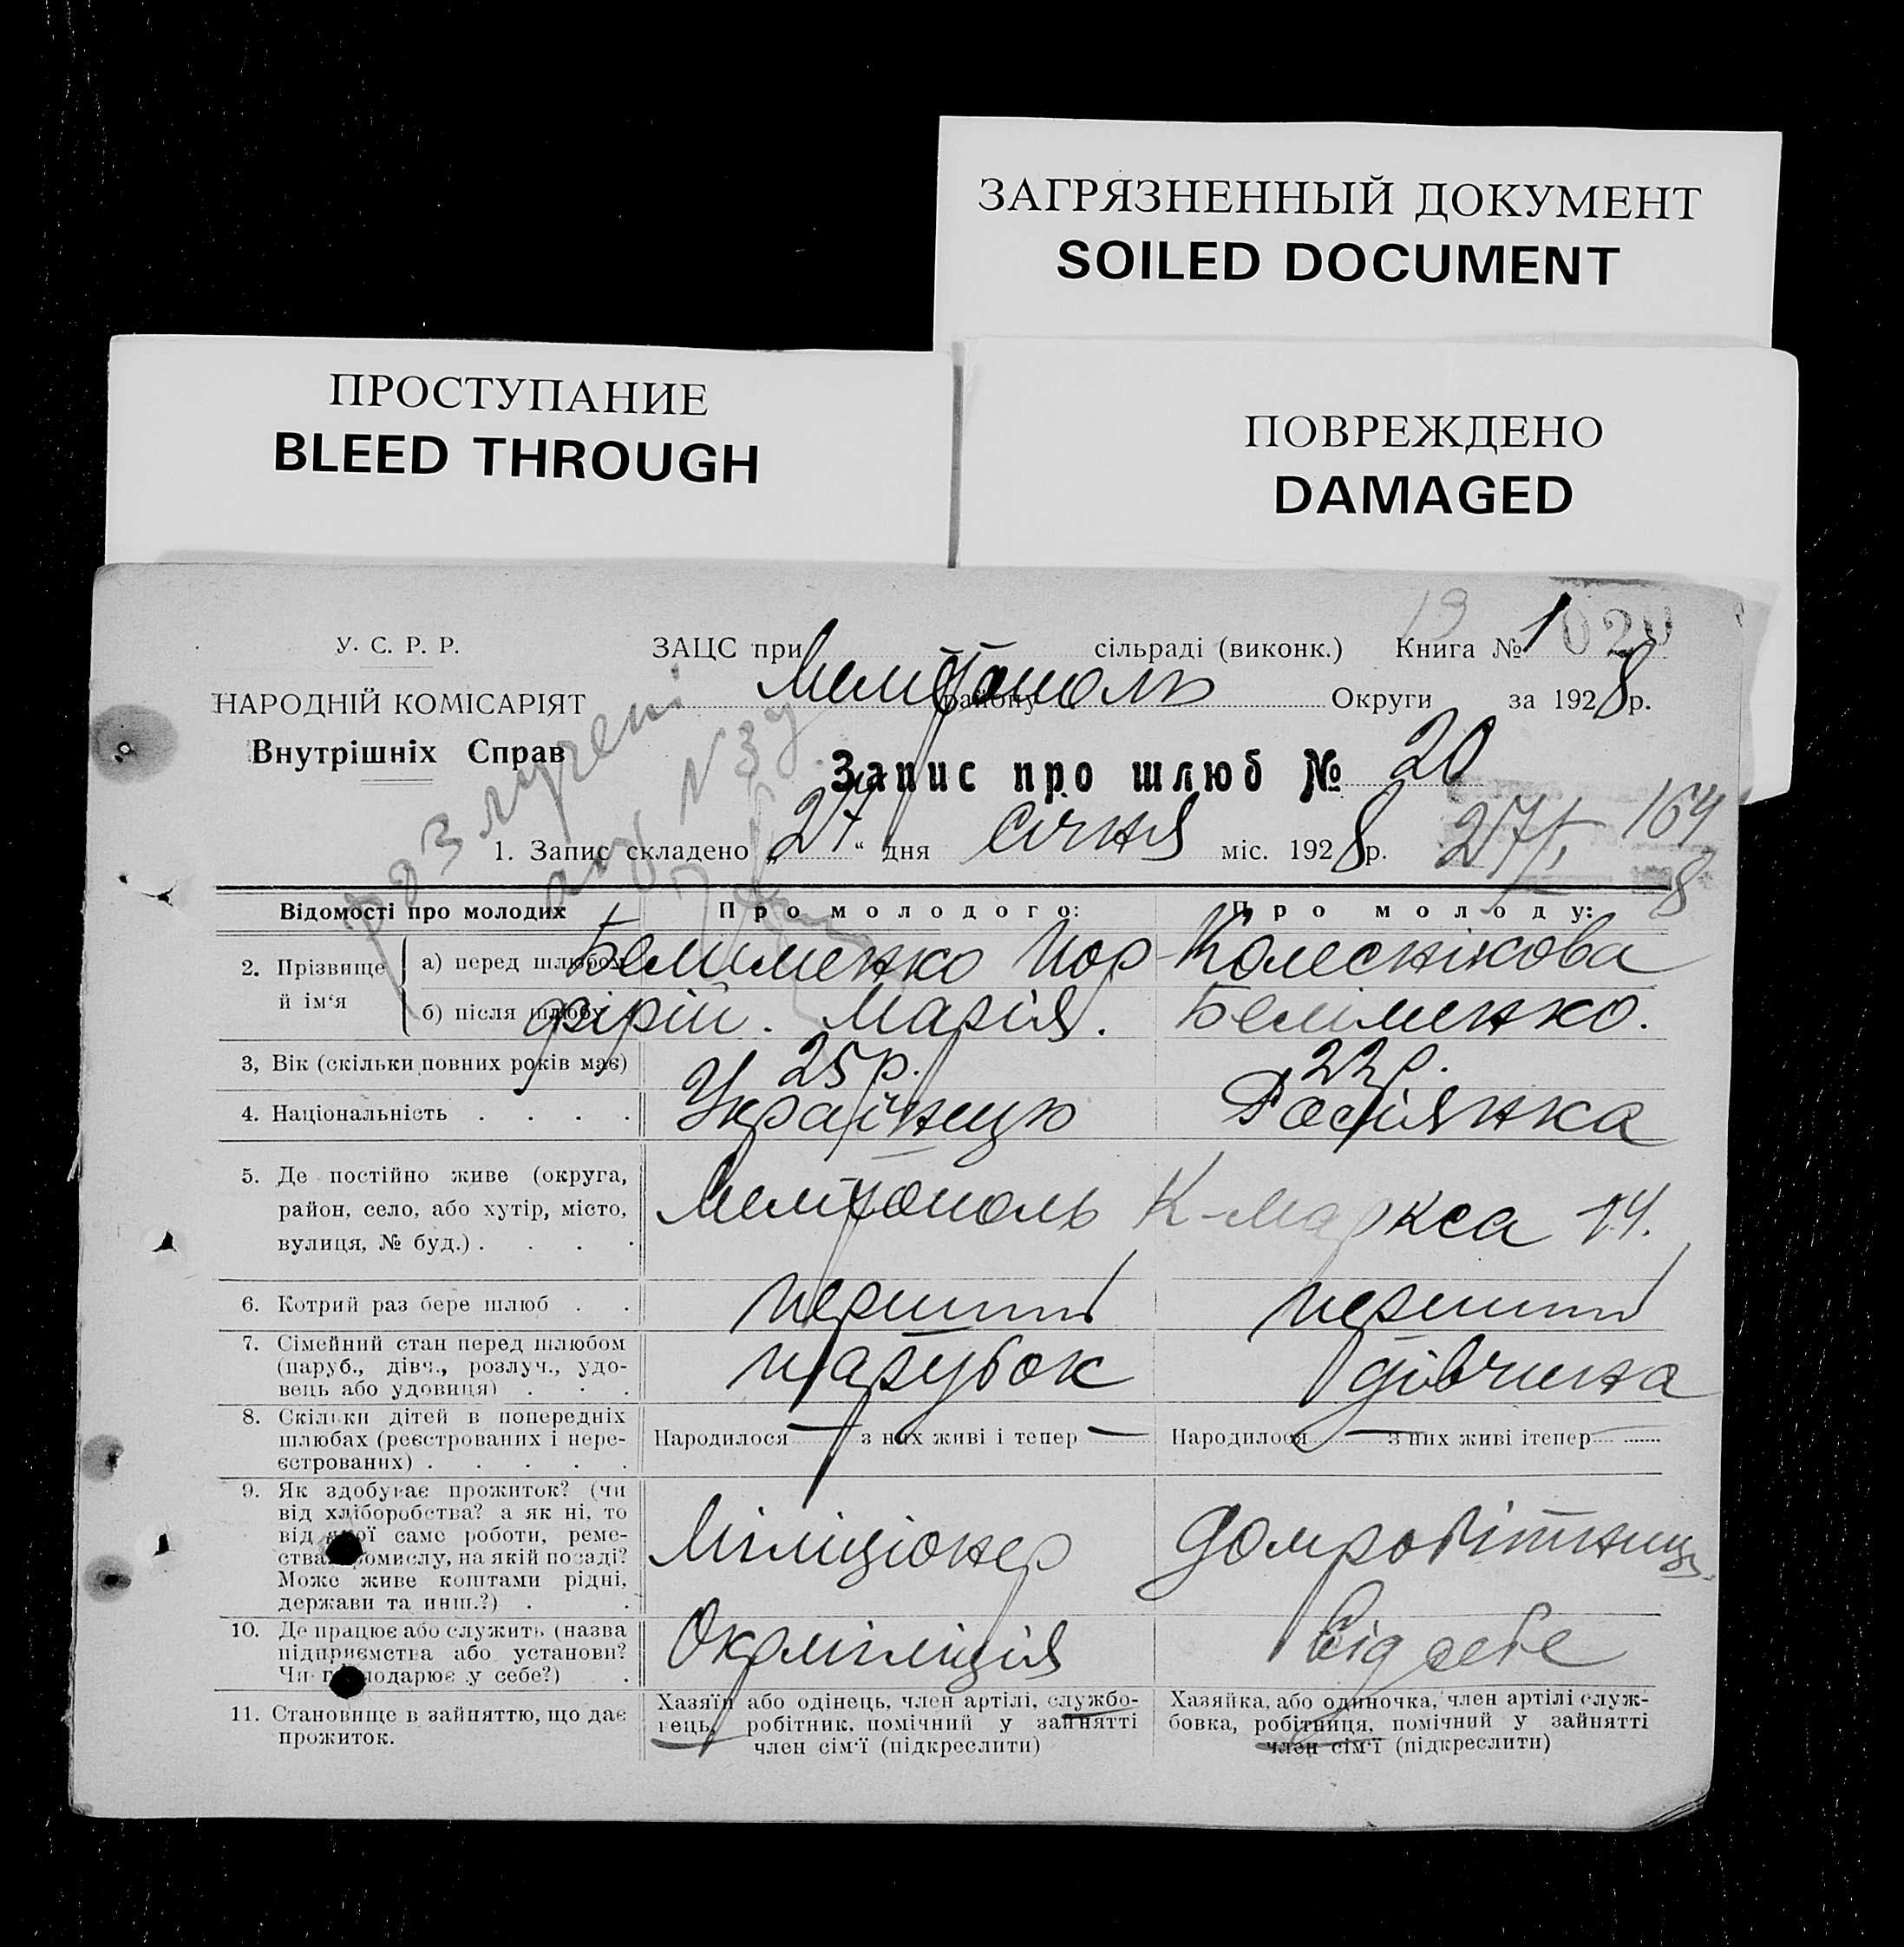 ЗАГРЯЗНЕННЫЙ ДОКУМЕНТ
SOILED DOCUMENT
ПРОСТУПАНИЕ
BLEED THROUGH
ПОВРЕЖДЕНО
DAMAGED
19
У. С. Р. Р.
НАРОДНІЙ КОМІСАРІЯТ
Внутрішніх Справ
ЗАЦС при сільраді (виконк.) Книга № 1
Мелітополь району Округи за 1928 р.
розлучені
акт N 39
Запис про шлюб № 20
1. Запис складено „27“ дня січня міс. 1928 р.
27/I 164
8
Відомості про молодих
Про молодого:
Про молоду:
2. Прізвище й ім‘я
а) перед шлюбом Белименко Пор- Колеснікова
б) після шлюбу фірій. Марія. Беліменко.
3, Вік (скільки повних років має) 25 р. 22 р.
4. Національність . . . . Українець Росіянка
5. Де постійно живе (округа,
район, село, або хутір, місто,
вулиця, № буд.) . . . .
Мелітополь К-Маркса 14.
6. Котрий раз бере шлюб . . перший перший
7. Сімейний стан перед шлюбом
(паруб., дівч., розлуч., удо-
вець або удовиця) . . .
парубок дівчина
8. Скільки дітей в попередніх
шлюбах (реєстрованих і нере-
єстрованих) . . . . .
Народилося — з них живі і тепер —
Народилося — з них живі ітепер
9. Як здобуває прожиток? (чи
від хліборобства? а як ні, то
від якої саме роботи, реме-
ства, промислу, на якій посаді?
Може живе коштами рідні,
держави та инш.?) . .
Міліціонер домробітниц.
10. Де працює або служить (назва
підприємства або установи?
Чи господарює у себе?) .
Окрміліція від себе
11. Становище в зайняттю, що дає
прожиток.
Хазяїн або одінець, член артілі, службо-
вець, робітник, помічний у зайнятті
член сім‘ї (підкреслити)
Хазяйка, або одиночка, член артілі служ-
бовка, робітниця, помічний у зайнятті
член сім‘ї (підкреслити)